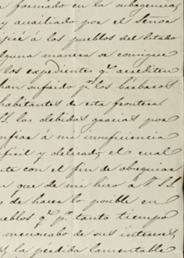 formado en la subagencia
y auxiliado por el Señor
á los pueblos del Estado
alguna manera se consigue
los expedientes q.e acrediten
han sufrido p.r los barbaros
habitantes de esta frontera
las debidas gracias por
á mi insuficiencia
y delicado, el cual
con el fin de obsequiar
que de mi hizo a
de hacer lo posible en
q.e p.r tanto tiempo
menoscabo de sus intereses
y la pérdida lamentable